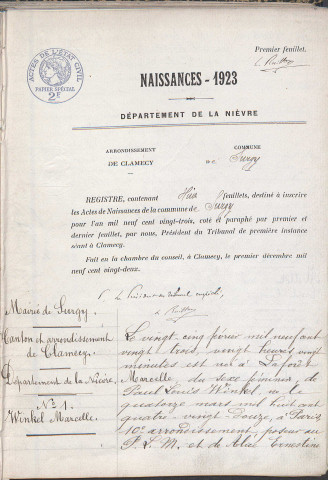 Premier feuillet.
ACTES DE L'ÉTAT CIVIL
PAPIER SPÉCIAL
2F
NAISSANCES - 1923
DÉPARTEMENT DE LA NIÈVRE
ARRONDISSEMENT
DE CLAMECY
COMMUNE
DE Surgy
REGISTRE, contenant feuillets, destiné à inscrire
les Actes de Naissances de la commune de Surgy
pour l'an mil neuf cent vingt-trois, coté et paraphé par premier et
dernier feuillet, par nous, Président du Tribunal de première instance
séant à Clamecy.
Fait en la chambre du conseil, à Clamecy, le premier décembre mil
neuf cent vingt-deux.
Le Président du tribunal empêché,
Mairie de Surgy.
Canton et arrondissement
de Clamecy.
Département de la Nièvre.
N° 1.
Winkel Marcelle.
Le vingt cinq février mil neuf cent
vingt trois, vingt heures vingt
minutes est née à Laforêt
Marcelle du sexe féminin, de
Paul Louis Winkel, né le
quatorze mars mil huit cent
quatre vingt douze, à Paris
10e arrondissement, poseur au
P. L. M. et de Ernestine